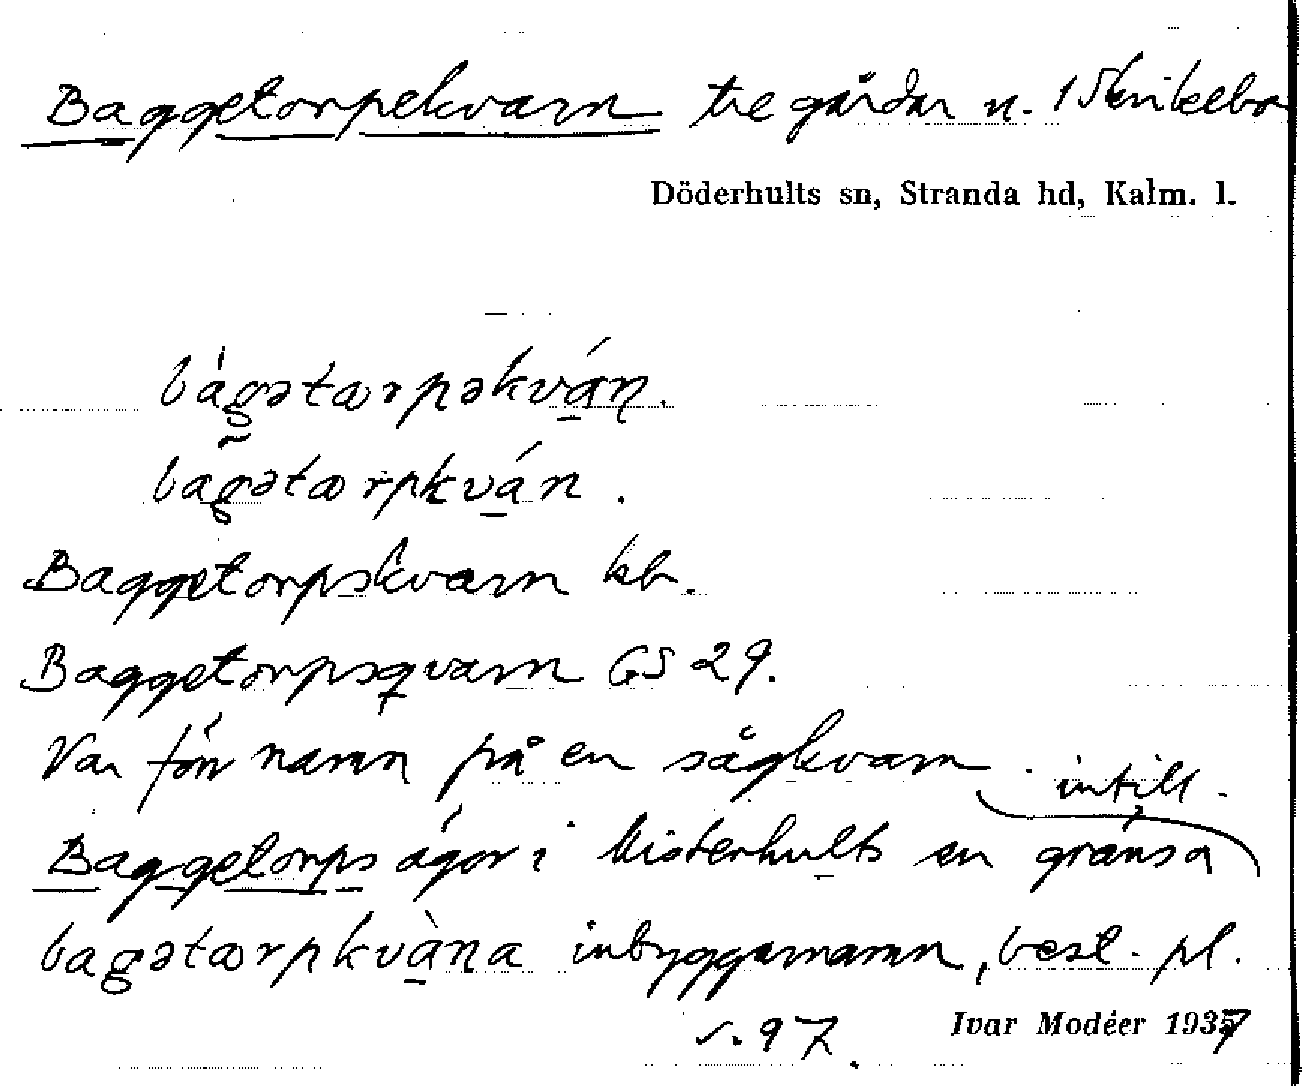 Baggetorpekvarn tre gårdar n. 1 Skrikebo
Döderhults sn, Stranda hd, Kalm. l.
bágətærpəkván.
bagətærpkván.
Baggetorpskvarn kb.
Baggetorpsqvarn GS 29.
Var förr namn på en sågkvarn
intill.
Baggetorps ägor i Misterhults sn gränsa
bagətærpkvàna inbyggarnamn, best. pl.
s. 97.
Ivar Modéer 1937